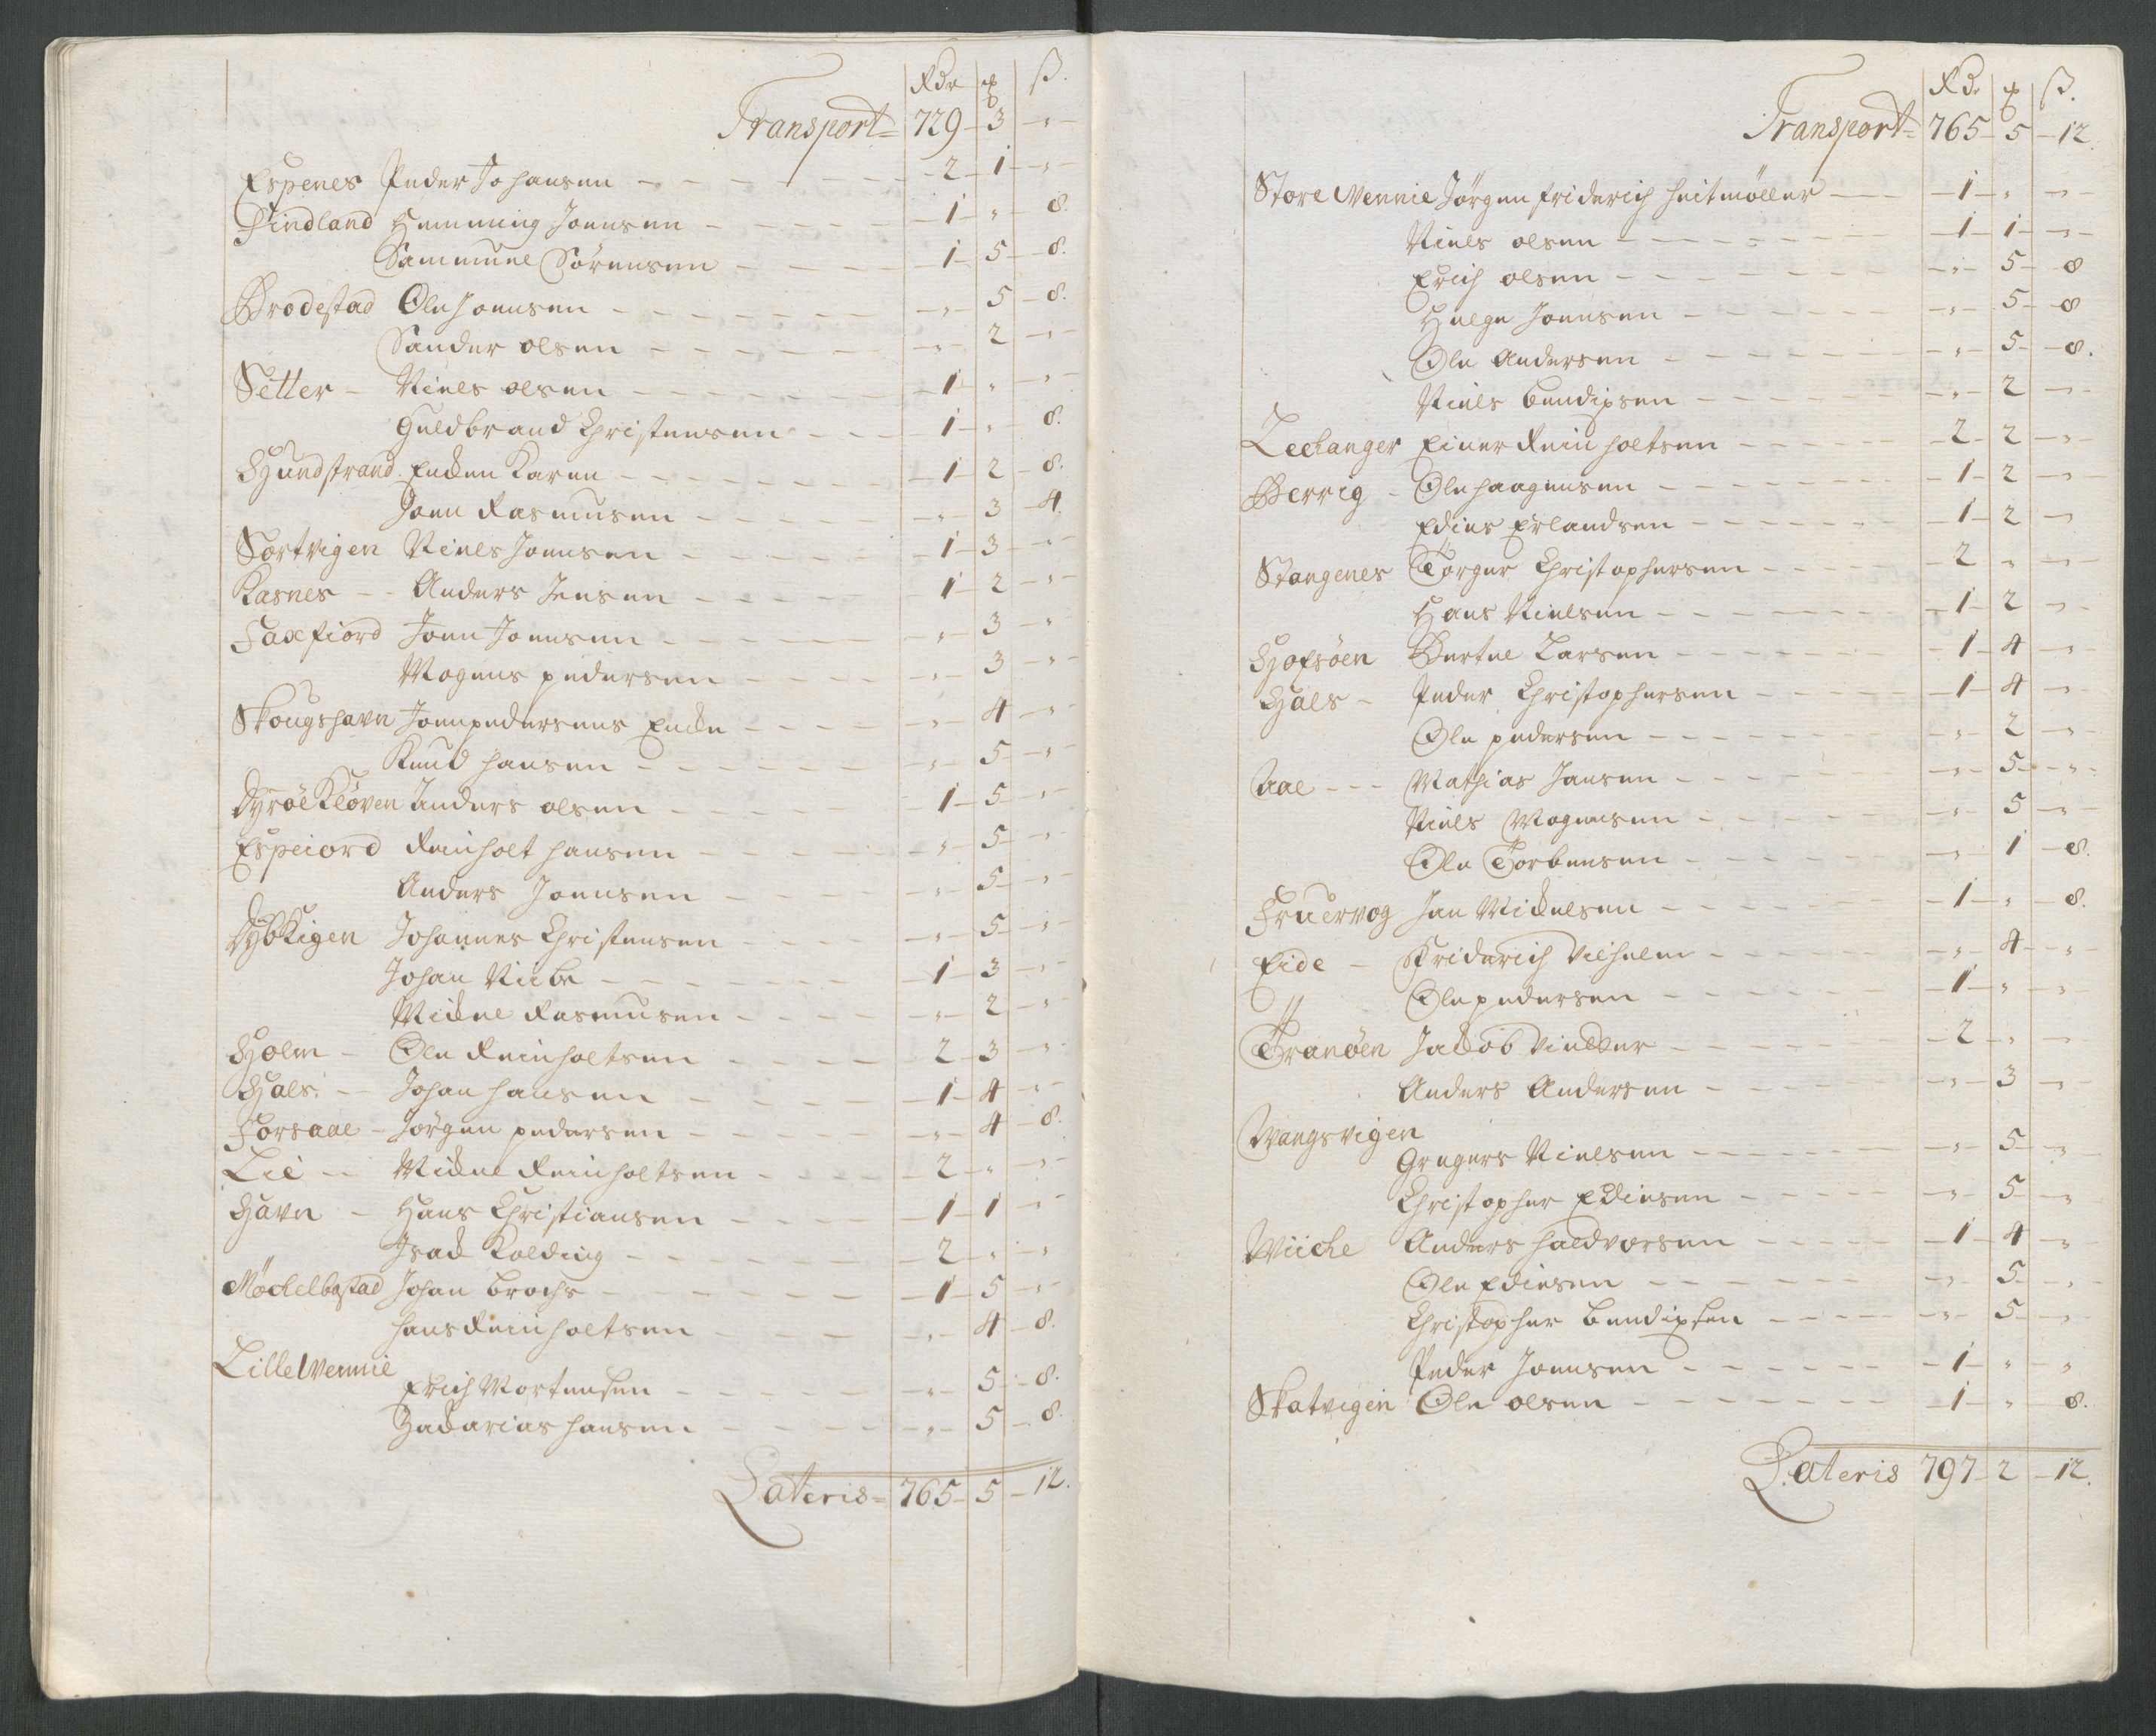 Rdr | ₰ | ß.
Transport= 729 – 3 – "
Espenes Peder Johansen – 2 – 1 – "
Tindland Hemming Joensen – 1 – " – 8.
Sammuel Sørensen – 1 – 5 – 8.
Brodestad Ole Joensen – " – 5 – 8.
Sander olsen – " – 2 – "
Setter – Niels olsen – 1 – " – "
Guldbrand Christensen – 1 – " – 8.
Hundstrand Encken Karen – 1 – 2 – 8.
Joen Rasmusen – " – 3 – 4.
Sortvigen Niels Joensen – 1 – 3 – "
Kasnes – Anders Jensen – 1 – 2 – "
Faxfiord Joen Joensen – " – 3 – "
Mogens pedersen – " – 3 – "
Skougshavn Joen pedersens Encke – " – 4 – "
Knud hansen – " – 5 – "
Dyrøe Kløven Anders olsen – 1 – 5 – "
Espeiord Reinholt hansen – " – 5 – "
Anders Joensen – " – 5 – "
Dybvigen Johannes Christensen – " – 5 – "
Johan Viibe – 1 – 3 – "
Mickel Rasmusen – " – 2 – "
Holm – Ole Reinholtsen – 2 – 3 – "
Hals. – Johan hansen – 1 – 4 – "
Forsaae – Jørgen pedersen – " – 4 – 8.
Lie – Mickel Reinholtsen – 2 – " – "
Havn – Hans Christiansen – 1 – 1 – "
Isack Kolding – 2 – " – "
Møckelbostad Johan brochs – 1 – 5 – "
hans Reinholtsen – " – 4 – 8.
Lille Wennie
Erich Mortensen – " – 5 – 8.
Zackarias hansen – " – 5 – 8.
Lateris= 765 – 5 – 12.
Rdr | ₰ | ß.
Transport= 765 – 5 – 12.
Store Wennie Jørgen friderich heitmøller – 1 – " – "
Niels olsen – 1 – 1 – "
Erich olsen – " – 5 – 8
Helge Joensen – " – 5 – 8
Ole Andersen – " – 5 – 8.
Niels bendixsen – " – 2 – "
Lechanger Einer Reinholtsen – 2 – 2 – "
Berrig – Ole haagensen – 1 – 2 – "
Edies Erlandsen – 1 – 2 – "
Stangenes Torger Christophersen – 2 – " – "
Hans Nielsen – 1 – 2 – "
Hofsøen Bertel Larsen – 1 – 4 – "
Hals – Peder Christophersen – 1 – 4 – "
Ole pedersen – " – 2 – "
Aae – Mathias Jansen – " – 5 – "
Niels Mogensen – " – 5 – "
Ole Torbensen – " – 1 – 8.
Fruervog Jan Mickelsen – 1 – " – 8.
Eide – Friderich Vilhelm – " – 4 – "
Ole pedersen – 1 – " – "
Tranøen Jackob Vindker – 2 – " – "
Anders Andersen – " – 3 – "
Wangsvigen
Gregers Nielsen – " – 5 – "
Christopher Ediesen – " – 5 – "
Wiiche Anders haldvorsen – 1 – 4 – "
Ole Ediesen – " – 5 – "
Christopher bendixsen – " – 5 – "
Peder Joensen – 1 – " – "
Skatvigen Ole olsen – 1 – " – 8.
Lateris 797 – 2 – 12.